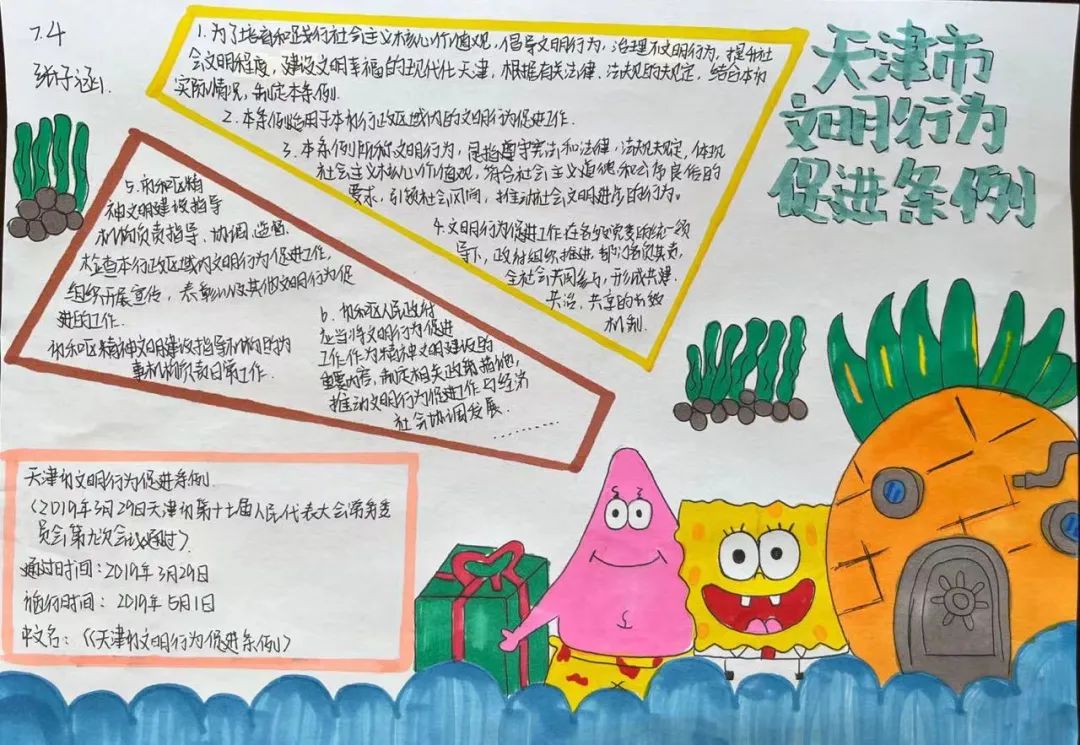 7.4
张子涵
天津市
文明行为
促进条例
1.为了培育和践行社会主义核心价值观，倡导文明行为，治理不文明行为，提升社
会文明程度，建设文明幸福的现代化天津，根据有关法律、法规的规定，结合本市
实际情况，制定本条例.
2.本条例适用于本市行政区域内的文明行为促进工作.
3.本条例所称文明行为，是指遵守宪法和法律、法规规定，体现
社会主义核心价值观，符合社会主义道德和公序良俗的
要求，引领社会风尚，推动社会文明进步的行为。
4.文明行为促进工作在各级党委的统一领
导下，政府组织推进，部门各负其责，
全社会共同参与，形成共建、
共治、共享的长效
机制.
5.市和区精
神文明建设指导
机构负责指导、协调、监督、
检查本行政区域内文明行为促进工作，
组织开展宣传，表彰以及其他文明行为促
进的工作.
市和区精神文明建设指导机构的办
事机构负责日常工作.
6.市和区人民政府
应当将文明行为促进
工作作为精神文明建设的
重要内容，制定相关政策措施，
推动文明行为促进工作与经济
社会协调发展.
…………
天津市文明行为促进条例
(2019年3月29日天津市第十七届人民代表大会常务委
员会第九次会议通过)
通过时间:2019年3月29日
施行时间:2019年5月1日
中文名:《天津市文明行为促进条例》